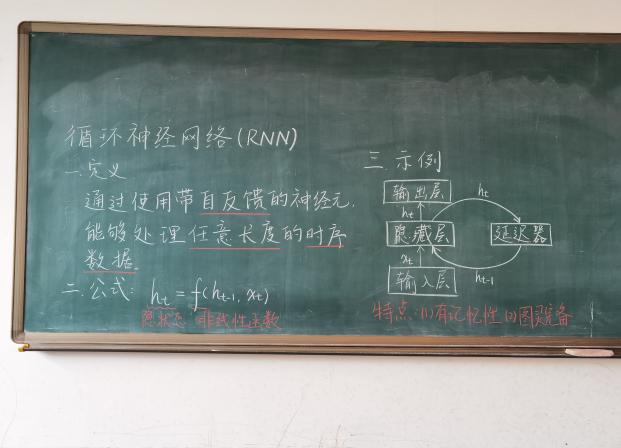 循环神经网络(RNN)
一.定义
通过使用带自反馈的神经元,
能够处理任意长度的时序
数据.
二.公式: ht = f(ht-1, xt)
隐状态 非线性函数
三.示例
输出层
ht
ht
隐藏层
延迟器
xt
ht-1
输入层
特点:(1)有记忆性(2)图灵完备